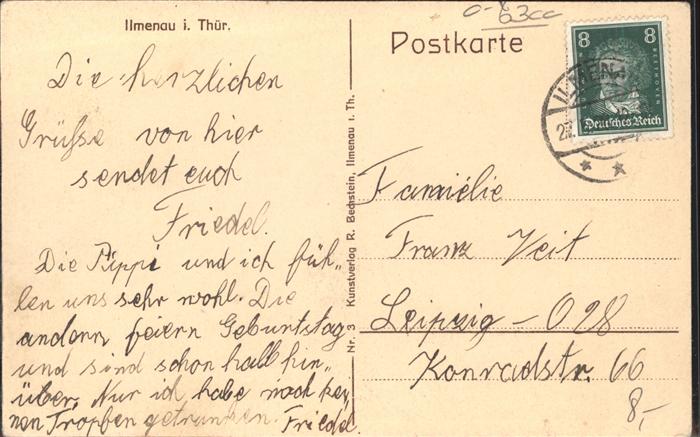 Ilmenau i. Thür.
Die herzlichen
Grüße von hier
sendet euch
Friedel.
Die Pippi und ich füh-
len uns sehr wohl. Die
andern feiern Geburtstag
und sind schon halb hin-
über. Nur ich habe noch kei-
nen Tropfen getrunken. Friedel.
Nr. 3 Kunstverlag R. Bechstein, Ilmenau i. Th.
Postkarte
8 8
BEETHOVEN
Deutsches Reich
Familie
Franz Veit
Leipzig - O 28
Konradstr. 66
8,-